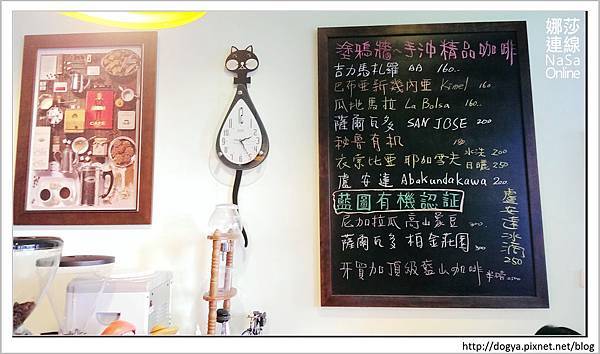 塗鴉牆~手沖精品咖啡
吉力馬札羅 AA 160..
巴布亞新幾內亞 Kimel 160
瓜地馬拉 La Bolsa 160..
薩爾瓦多 SAN JOSE 200
秘魯有机
水洗 200
衣索比亞 耶加雪夫 日曬 250
盧安達 Abakundakawa 200
藍圖有機認証
尼加拉瓜 高山象豆
薩爾瓦多 柏金莊園
牙買加頂級藍山咖啡 半磅
盧安達冰滴
250
CAFE
娜莎
連線
NaSa
Online
http://dogya.pixnet.net/blog